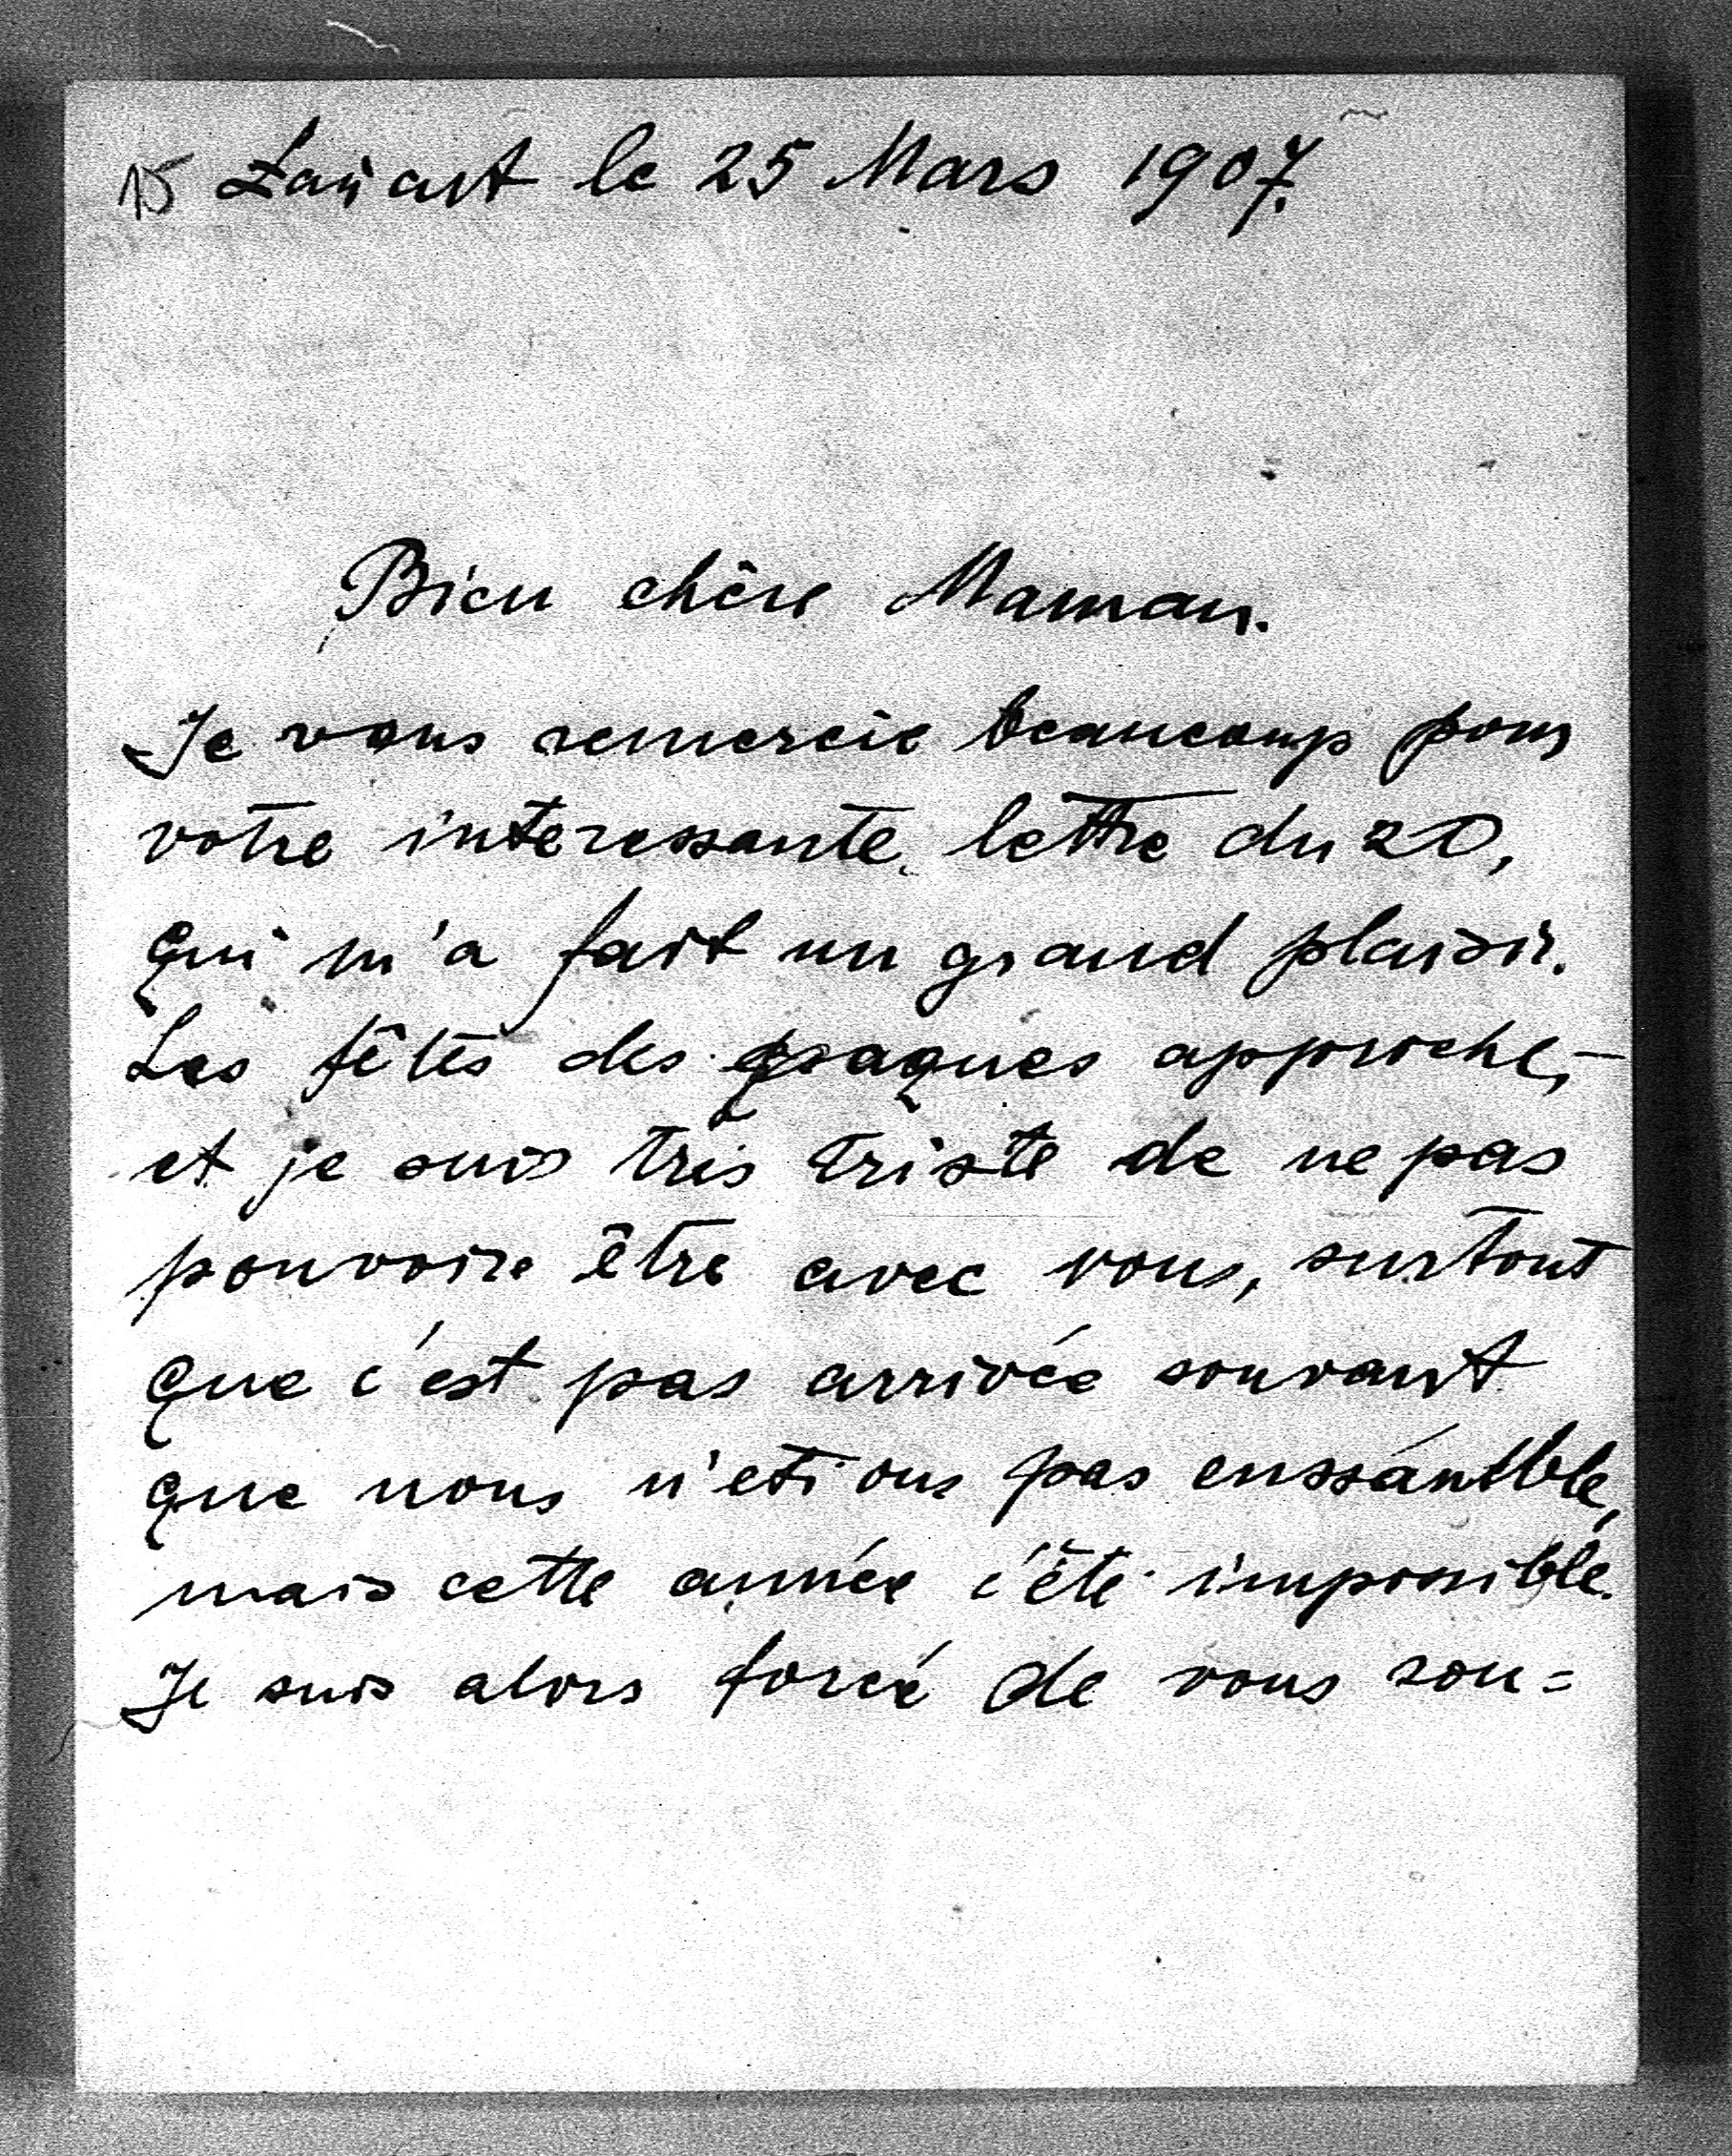 15 Lańcut le 25 Mars 1907.
Bien chère Maman.
Je vous remercie beaucoup pour
votre interessante lettre du 20,
qui m'a fait un grand plaisir.
Les fêtes des paques approche,
et je suis très triste de ne pas
pouvoire être avec vous, surtout
que c'est pas arrivée souvant
que nous n'etions pas enssamble,
mais cette année c'été impossible.
Je suis alors forcé de vous sou=